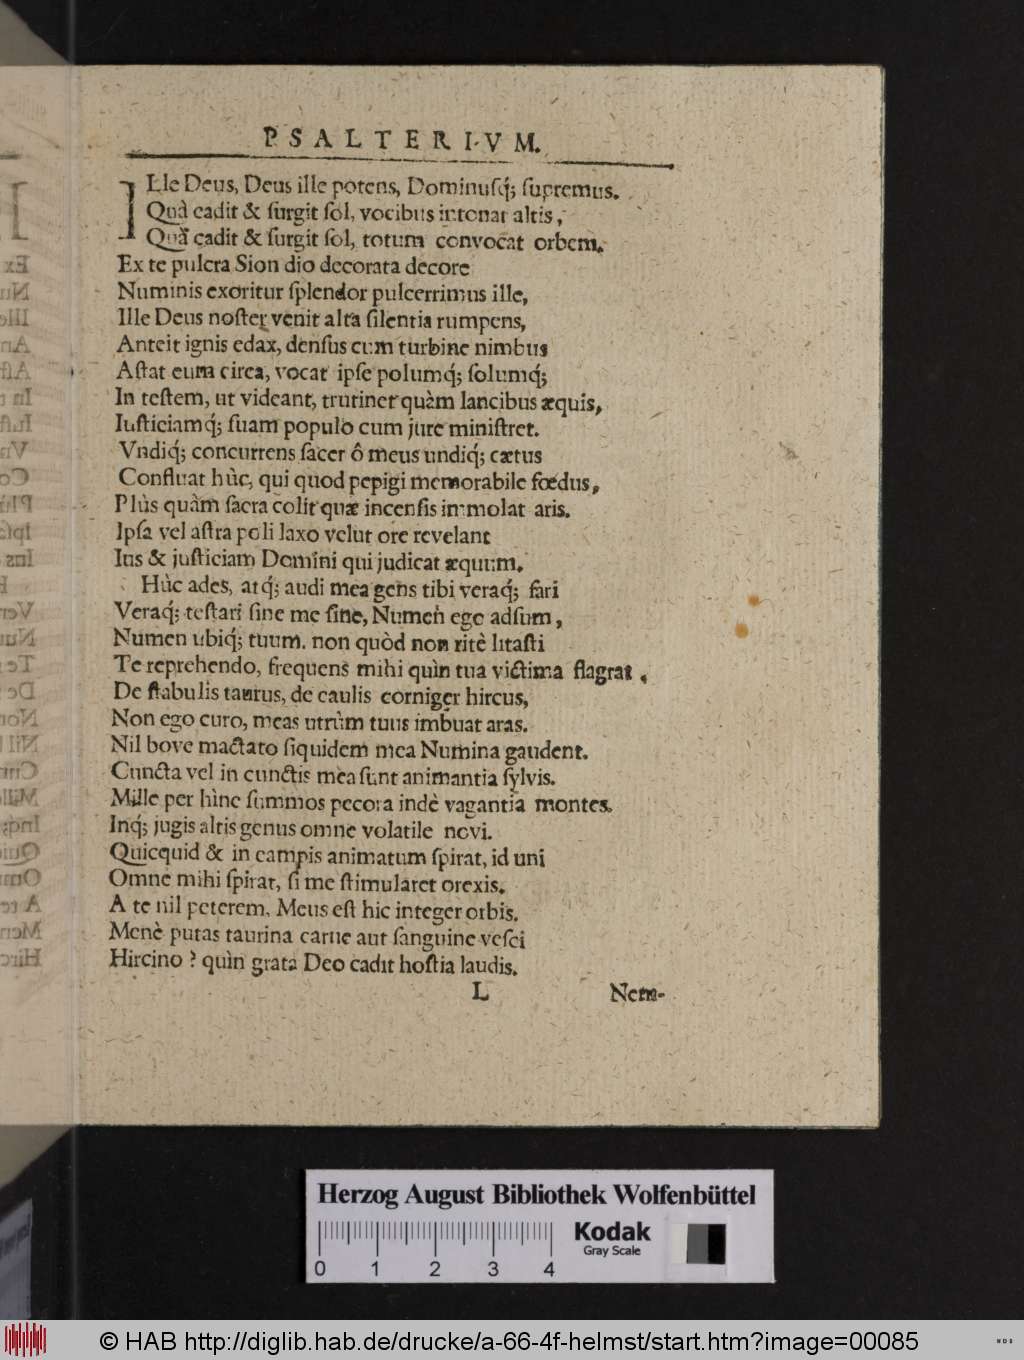 PSALTERIVM.
ILle Deus, Deus ille potens, Dominusq́; supremus.
Quà cadit & surgit sol, vocibus intonat altis,
Quà cadit & surgit sol, totum convocat orbem.
Ex te pulcra Sion dio decorata decore
Numinis exoritur splendor pulcerrimus ille,
Ille Deus noster venit alta silentia rumpens,
Anteit ignis edax, densus cum turbine nimbus
Astat eum circa, vocat ipse polumq́; solumq́;
In testem, ut videant, trutinet quàm lancibus æquis,
Iusticiamq́; suam populo cum jure ministret.
Vndiq́; concurrens sacer ô meus undiq́; cætus
Confluat hùc, qui quod pepigi memorabile fœdus,
Plùs quàm sacra colit quæ incensis immolat aris.
Ipsa vel astra poli laxo velut ore revelant
Ius & justiciam Domini qui judicat æquum.
Hùc ades, atq́; audi mea gens tibi veraq́; fari
Veraq́; testari sine me sine, Numen ego adsum,
Numen ubiq́; tuum. non quòd non ritè litasti
Te reprehendo, frequens mihi quìn tua victima flagrat.
De stabulis taurus, de caulis corniger hircus,
Non ego curo, meas utrùm tuus imbuat aras.
Nil bove mactato siquidem mea Numina gaudent.
Cuncta vel in cunctis mea sunt animantia sylvis.
Mille per hìnc summos pecora indè vagantia montes.
Inq́; jugis altis genus omne volatile novi.
Quicquid & in campis animatum spirat, id uni
Omne mihi spirat, si me stimularet orexis.
A te nil peterem. Meus est hic integer orbis.
Menè putas taurina carne aut sanguine vesci
Hircino? quìn grata Deo cadit hostia laudis.
L Nem-
Herzog August Bibliothek Wolfenbüttel
Kodak
Gray Scale
0 1 2 3 4
© HAB http://diglib.hab.de/drucke/a-66-4f-helmst/start.htm?image=00085